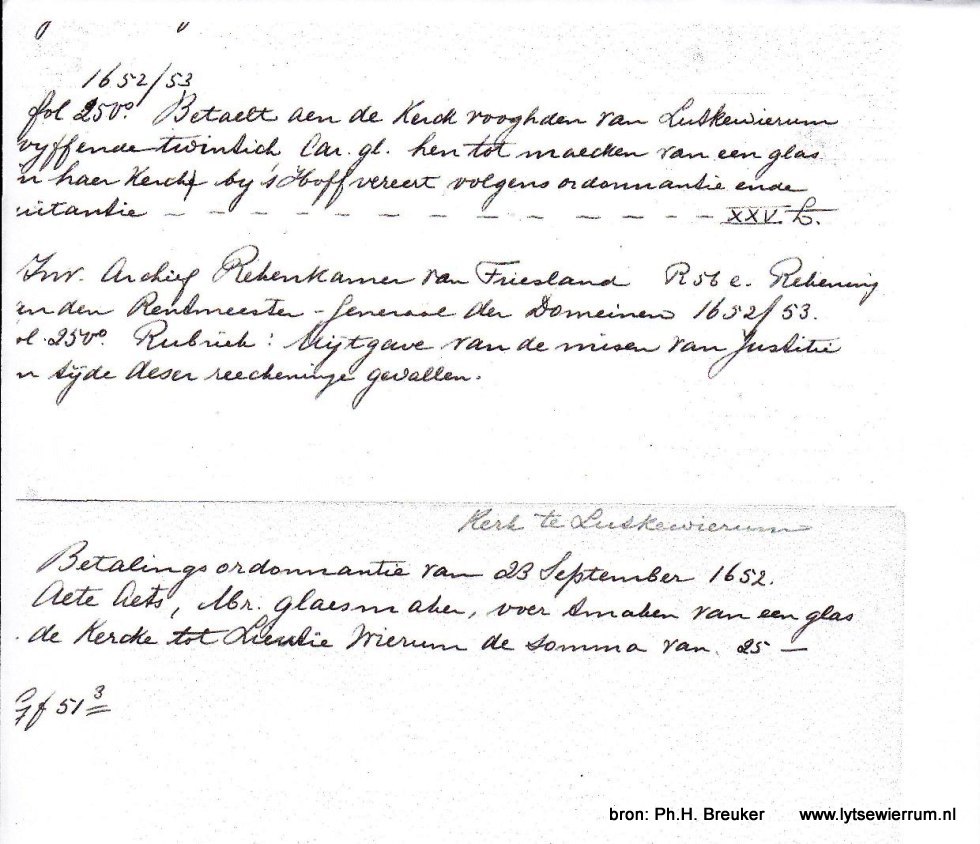 1652/53
fol 250vo. Betaelt aen de Kerck vooghden van Luskewierum
vyffende twintich Car. gl. hen tot maecken van een glas
n haer Kerck by 's Hoff vereert volgens ordonnantie ende
uitantie – – – – – – – – – – – – – – – XXV. £.
Inv. Archief Rekenkamer van Friesland R5b e. Rekening
an den Rentmeester-Generaal der Domeinen 1652/53.
ol. 250vo. Rubriek: Uijtgave van de misen van Justitie
n tijde deser reeckeninge gevallen.
Kerk te Luskewierum
Betalingsordonnantie van 23 September 1652.
Aete Aets, Mr. glaesmaker, voor tmaken van een glas
de Kercke tot Lieutie Wierum de somma van. 25 –
f 51 3
bron: Ph.H. Breuker www.lytsewierrum.nl